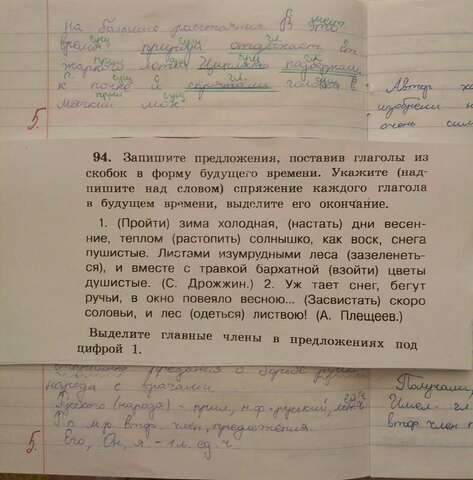 на большо расстояния В это
время природа отдыхает от
жаркого лета.
к почке и спрятали головы в
мягкий мох.
5.
Автор
изобрели
очень сим
94. Запишите предложения, поставив глаголы из
скобок в форму будущего времени. Укажите (над-
пишите над словом) спряжение каждого глагола
в будущем времени, выделите его окончание.
1. (Пройти) зима холодная, (настать) дни весен-
ние, теплом (растопить) солнышко, как воск, снега
пушистые. Листами изумрудными леса (зазеленеть-
ся), и вместе с травкой бархатной (взойти) цветы
душистые. (С. Дрожжин.) 2. Уж тает снег, бегут
ручьи, в окно повеяло весною... (Засвистать) скоро
соловьи, и лес (одеться) листвою! (А. Плещеев.)
Выделите главные члены в предложениях под
цифрой 1.
предания о борьбе
народа с врагами
(народа) - прил., н.ф. - русский,
Р.п м.р втор. член, предложения.
5. Его, Он, я - 1л. ед. ч
Получали,
Имел. гл.
втор член п